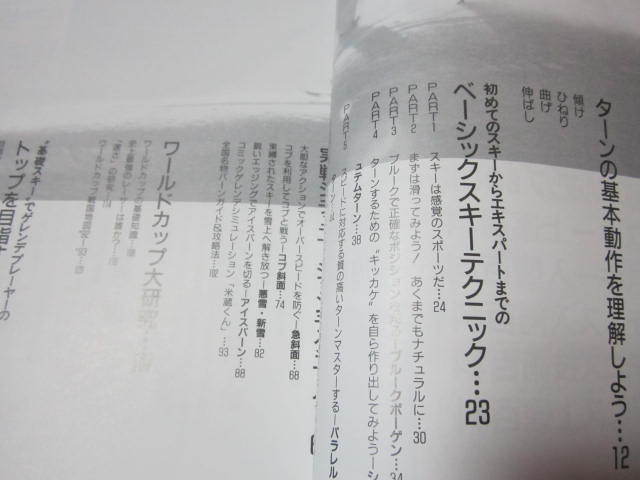 ターンの基本動作を理解しよう…12
傾け
ひねり
曲げ
伸ばし
初めてのスキーからエキスパートまでの
ベーシックスキーテクニック…23
PART1 スキーは感覚のスポーツだ…24
PART2 まずは滑ってみよう! あくまでもナチュラルに…30
PART3 プルークで正確なポジション プルークボーゲン…34
PART4 ターンするための“キッカケ”を自ら作り出してみよう—シ
ュテムターン…38
PART5 スピードに対応する質の高いターンマスターする—パラレル
大胆なアクションでオーバースピードを防ぐ—急斜面…68
コブを利用してコブと戦う—コブ斜面…74
束縛されたスキーを雪上へ解き放つ—悪雪・新雪…82
鋭いエッジングでアイスバーンを切る—アイスバーン…88
コミックゲレンデシミュレーション「米蔵くん」…93
全国名物バーンガイド&攻略法…102
ワールドカップ大研究…
ワールドカップの基礎知識…
史上最強のレーサーは誰か?…
“基礎スキー”でゲレンデプレーヤーの
トップを目指す